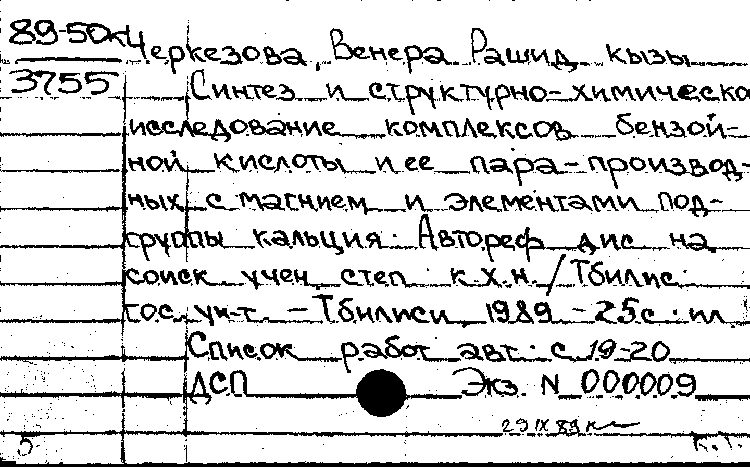 89-50к
3755
Черкезова, Венера Рашид кызы
Синтез и структурно-химическо
исследование комплексов бензой-
ной кислоты и ее пара-производ-
ных с магнием и элементами под-
группы кальция: Автореф дис на
соиск учен. степ к.х.н. / Тбилис.
гос. ун-т. - Тбилиси, 1989 - 25с. ил
Список работ авт.: с 19-20
ДСП Экз. N 000009
29 IX 89
5 К.Т.